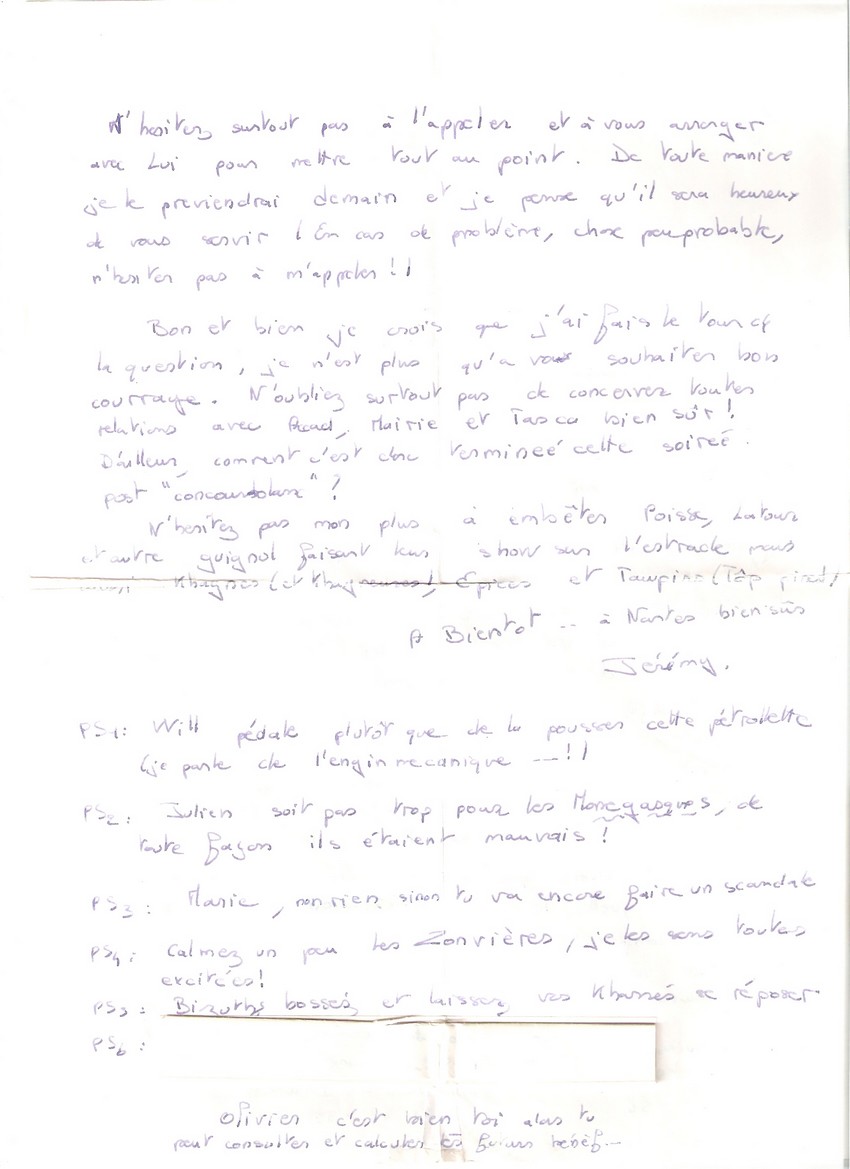 N'hesitez surtout pas à l'appeler et à vous arranger
avec Lui pour mettre tout au point. De toute maniere
je le previendrai demain et je pense qu'il sera heureux
de vous servir ! En cas de problème, chose peu probable,
n'hesiter pas à m'appeler !!
Bon et bien je crois que j'ai fais le tour de
la question, je n'est plus qu'a vous souhaiter bon
courrage. N'oubliez surtout pas de concervez toutes
relations avec Mairie et Tasca bien sûr !
D'ailleur, comment c'est donc termineé cette soireé
post " " ?
N'hesitez pas mon plus à embêter Poisse, Latour
et autre guignol faisant leur show sur l'estrade mais
Khagnes (et Epices et Taupins (Tôp
A Bientot -- à Nantes bien sûr
Jérémy.
PS1: Will pédale plutôt que de la pousser cette pétrollette
(je parle de l'engin mecanique ---!!
PS2: Julien soit pas trop pour les Monegasques, de
toute façon ils étaient mauvais !
PS3: Marie, non rien, sinon tu va encore faire un scandale
PS4: Calmez un peu les Zonvières, je les sens toutes
excitées!
PS5: Bizuths bossez et laissez vos se réposer
PS6:
Olivier c'est bien toi alors tu
peut consulter et calculer futurs